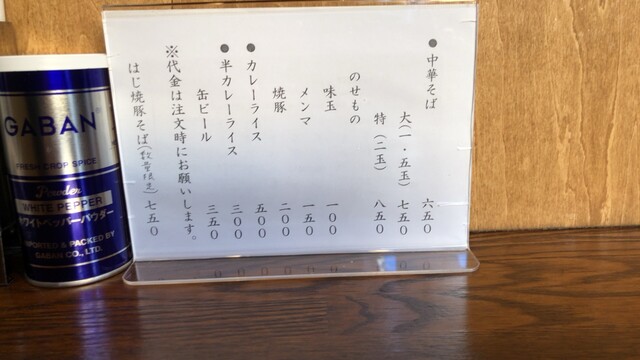 ●中華そば 六五〇
大(一・五玉) 七五〇
特(二玉) 八五〇
のせもの
味玉 一〇〇
メンマ 一五〇
焼豚 二〇〇
●カレーライス 五〇〇
●半カレーライス 三〇〇
缶ビール 三五〇
※代金は注文時にお願いします。
はじ焼豚そば(数量限定) 七五〇
GABAN
FRESH DROP SPICE
Powder
WHITE PEPPER
ホワイトペッパーパウダー
IMPORTED & PACKED BY
GABAN CO., LTD.